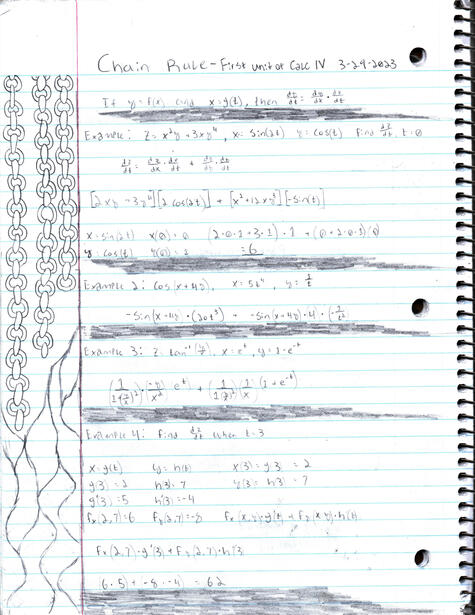 Chain Rule - First unit of Calc IV 3-29-2023
If y = f(x) and x = g(t), then dy/dt = dy/dx · dx/dt
Example: z = x²y + 3xy⁴, x = sin(2t) y = cos(t) Find dz/dt, t=0
dz/dt = dz/dx · dx/dt + dz/dy · dy/dt
[2xy + 3y⁴][2 cos(2t)] + [x² + 12xy³][-sin(t)]
x = sin(2t) x(0) = 0 (2·0·1 + 3·1) · 1 + (0 + 2·0·1)(0)
y = cos(t) y(0) = 1 = 6
Example 2: cos(x+4y), x = 5t⁴, y = 1/t
-sin(x+4y) · (20t³) + -sin(x+4y) · 4 · (-1/t²)
Example 3: z = tan⁻¹(y/x), x = eᵗ, y = 1-e⁻ᵗ
(1/1+(y/x)²)(-y/x²) eᵗ) + (1/1+(y/x)²)(1/x)(1+e⁻ᵗ)
Example 4: Find dz/dt when t=3
x = g(t) y = h(t) x(3) = g(3) = 2
g(3) = 2 h(3) = 7 y(3) = h(3) = 7
g'(3) = 5 h'(3) = -4
fx(2,7) = 6 fy(2,7) = -8 fx(x,y) · g'(t) + fy(x,y) · h'(t)
fx(2,7) · g'(3) + fy(2,7) · h'(3)
(6·5) + -8 · -4) = 62